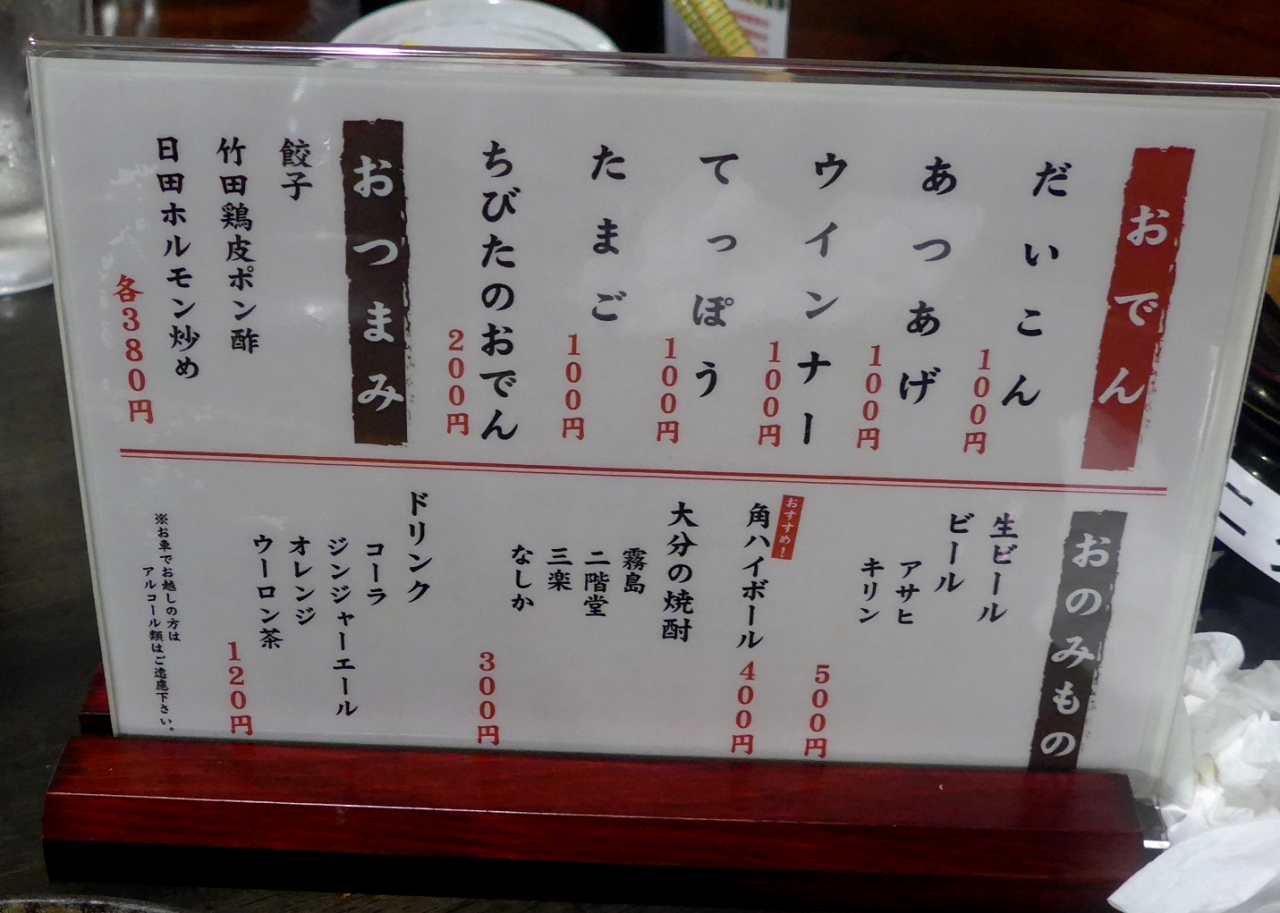 おでん
だいこん
100円
あつあげ
100円
ウインナー
100円
てっぽう
100円
たまご
100円
ちびたのおでん
200円
おつまみ
餃子
竹田鶏皮ポン酢
日田ホルモン炒め
各380円
おのみもの
生ビール
ビール
アサヒ
キリン
500円
おすすめ!
角ハイボール
400円
大分の焼酎
霧島
二階堂
三楽
なしか
300円
ドリンク
コーラ
ジンジャーエール
オレンジ
ウーロン茶
120円
※お車でお越しの方は
アルコール類はご遠慮下さい。